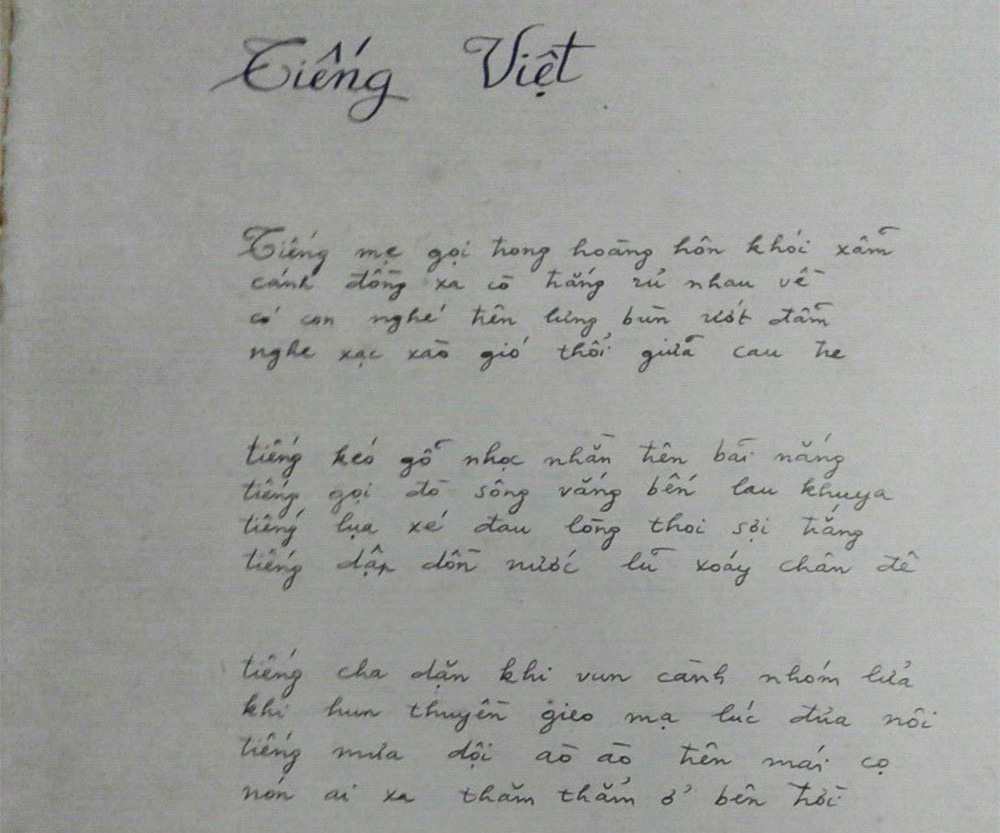 Tiếng Việt
Tiếng mẹ gọi trong hoàng hôn khói xẫm
cánh đồng xa cò trắng rủ nhau về
có con nghé trên lưng bùn ướt đẫm
nghe xạc xào gió thổi giữa cau tre
tiếng kéo gỗ nhọc nhằn trên bãi nắng
tiếng gọi đò sông vắng bến lau khuya
tiếng lụa xé đau lòng thoi sợi trắng
tiếng dập dồn nước lũ xoáy chân đê
tiếng cha dặn khi vun cành nhóm lửa
khi hun thuyền gieo mạ lúc đưa nôi
tiếng mưa dội ào ào trên mái cọ
nón ai xa thăm thẳm ở bên trời